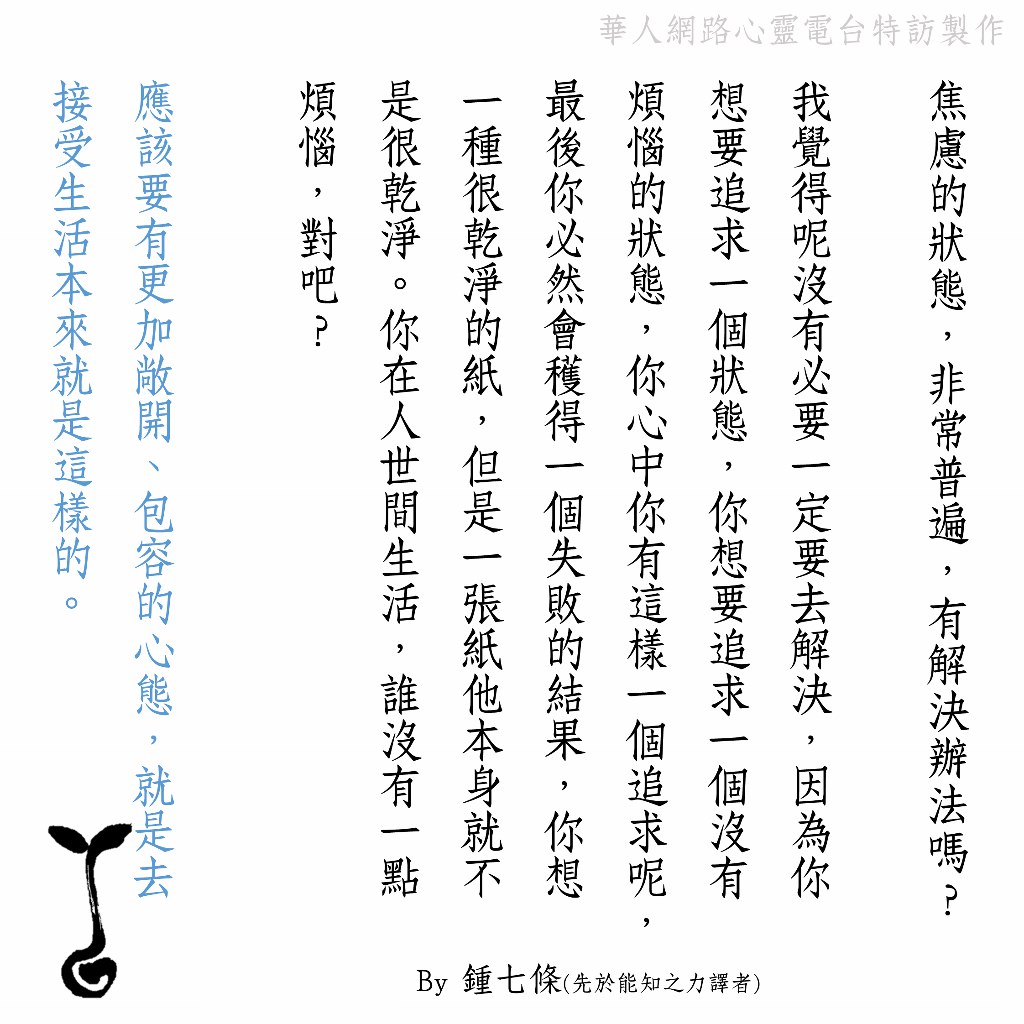 華人網路心靈電台特訪製作
焦慮的狀態，非常普遍，有解決辦法嗎？
我覺得呢沒有必要一定要去解決，因為你
想要追求一個狀態，你想要追求一個沒有
煩惱的狀態，你心中你有這樣一個追求呢，
最後你必然會穫得一個失敗的結果，你想
一種很乾淨的紙，但是一張紙他本身就不
是很乾淨。你在人世間生活，誰沒有一點
煩惱，對吧？
應該要有更加敞開、包容的心態，就是去
接受生活本來就是這樣的。
By 鍾七條(先於能知之力譯者)